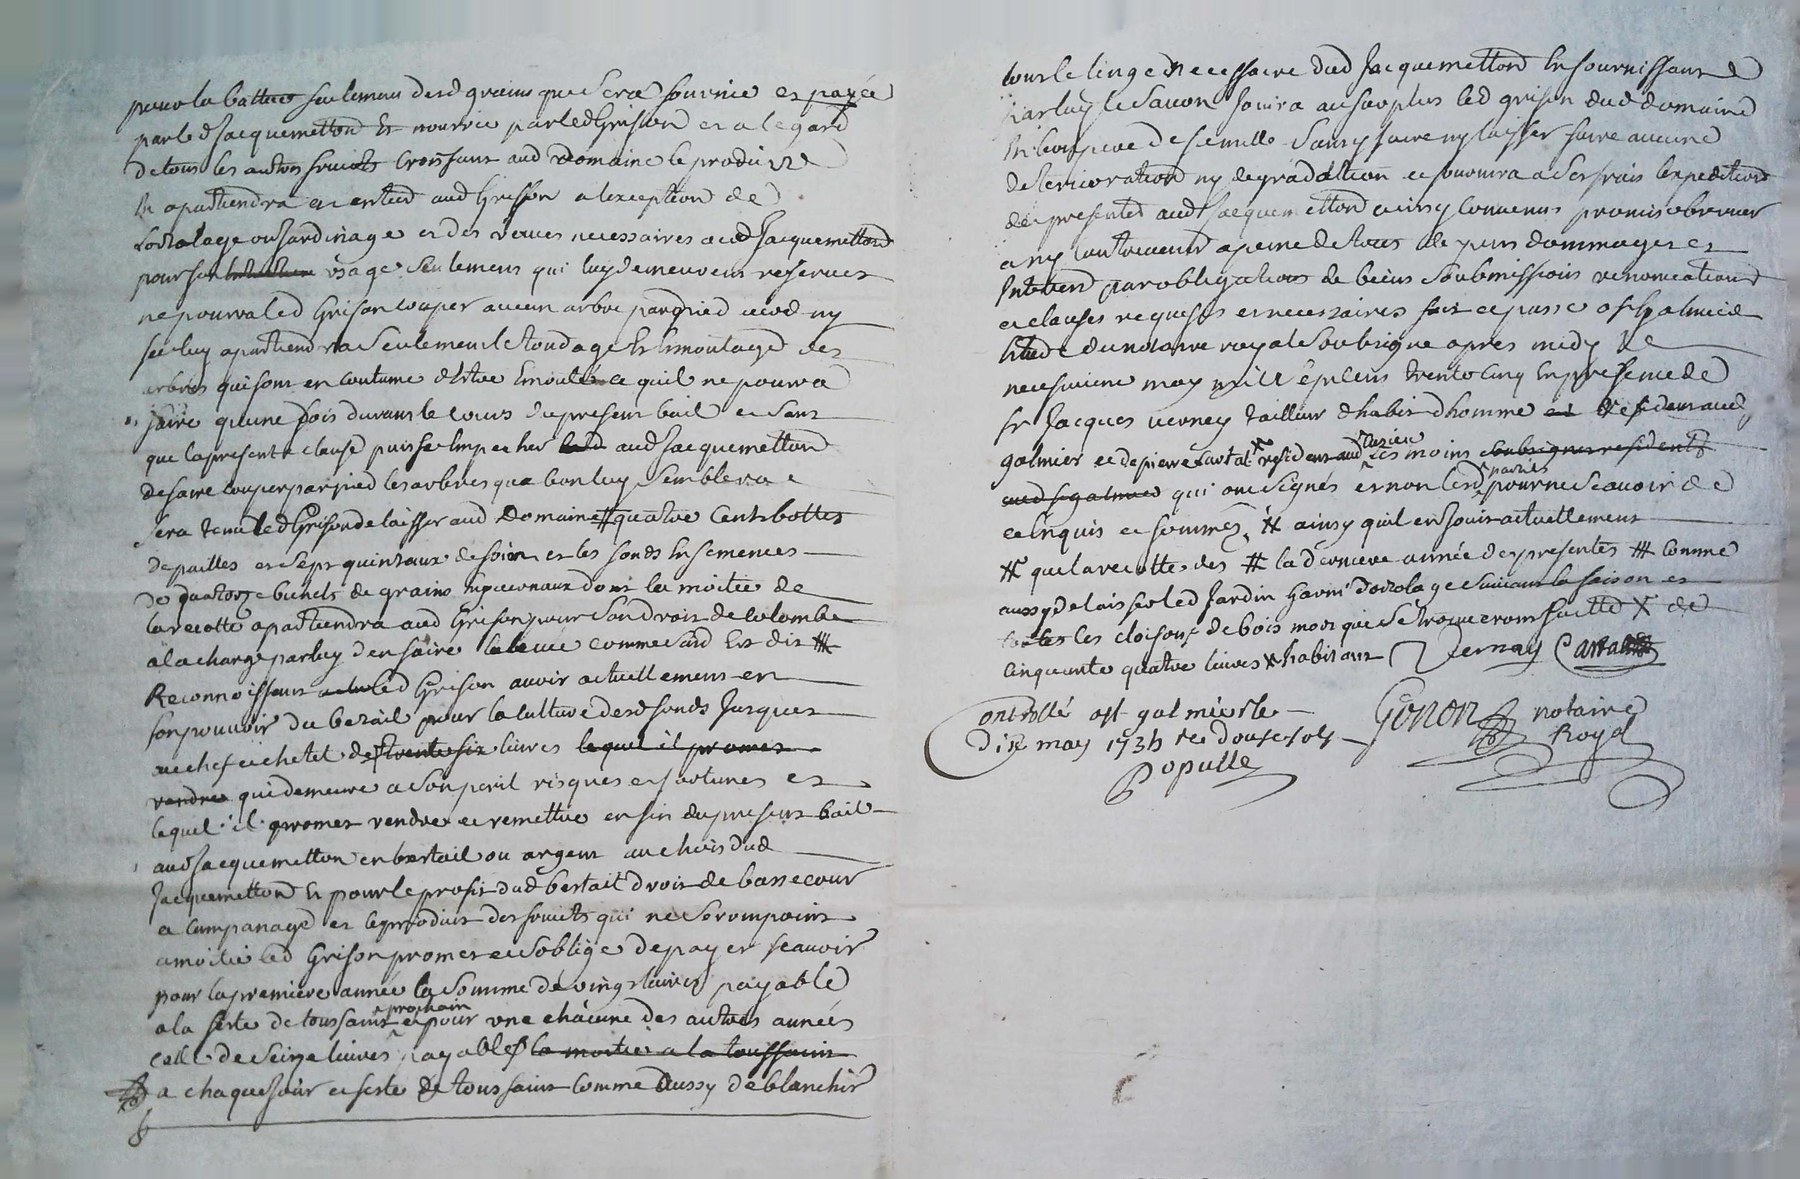 pour la batture seulement desd grains que sera fournie et payée
par led Jacquemetton Et nourrie par led Grison et a legard
de tous les autres fruits Croissant aud Domaine le produit
En apartiendra en entier aud Grison a lexception de
Lortolage ou Jardinage et des raves necessaires aud Jacquemetton
pour son usage seulement qui luy demeurent reservés
ne pourra led Grison couper aucun arbre par pied ny
luy apartiendra Seulement le tondage Et Emoutage des
arbres qui sont en coutume dEtre Emouté ce quil ne pourra
faire qu'une fois durant le cours du present bail et sans
que la presente clause puisse Empecher aud Jacquemetton
de faire couper par pied les arbres que bon luy Semblera
Sera tenu led Grison de laisser aud Domaine # quatre Cent bottes
de pailles et Sept quintaux de foin et les fonds Ensemencés
de quatorze bichets de grains dont la moitié de
la recolte apartiendra aud Grison pour Son droit de colombe
a la charge par luy den faire la levée comme Sud Est dit ##
Reconnoissent led Grison avoir actuellement en
son pouvoir du bétail pour la culture desd fonds Jusques
au chef et chetel de trente six livres lequel il promet
rendre qui demeure a son peril risques et fortunes et
lequel il promet rendre et remettre en fin du present bail
aud Jacquemetton en bestail ou argent au choix dud
Jacquemetton Et pour le profit dud bestail droit de basse cour
et campanage et le produit des fruits qui ne Seront point
a moitié led Grison promet et soblige de payer scavoir
pour la premiere année la Somme de vingt livres payable
a la feste de toussaint prochain et pour une chacune des autres années
celle de Seize livres payable la moitié a la toussaint
a chaque jour et feste de toussaint comme Aussy de blanchir
tout le linge Necessaire dud Jacquemetton En fournissant
par luy le Savon Jouira au surplus led grison dud domaine
En bon pere de famille Sans y faire ny laisser faire aucune
deterioration ny degradation et fournira a Ses frais lexpedition
des presentes aud Jacquemetton ainsy Convenu promis observer
a ny contrevenir a peine de tous depens dommages et
Interests par obligations de biens Soubmissions renonciation
et clauses requises et necessaires fait et passé a St galmier
Etude du notaire royal Soubsigné apres midy le
neuvieme may mille Sept cent trente Cinq En presence de
Sr Jacques verney tailleur dhabit dhomme residant aud St
galmier et de pierre resident aud tesmoins soubsignes residents
aud St galmier qui ont Signés et non lesd parties pour ne Scavoir de
ce Enquis et sommés # ainsy quil en Jouit actuellement
# que la recolte des # la derniere année des presentes ## Comme
aussy de laisser led Jardin garni dortolage Suivant la Saison et
toutes les cloisons de bois mort qui Se trouveront faittes X de
Cinquante quatre livres X habitant Vernay Cartal
Controllé a St galmier le
dix may 1735 Re douze sols
Popule
Gonon notaire
Royal